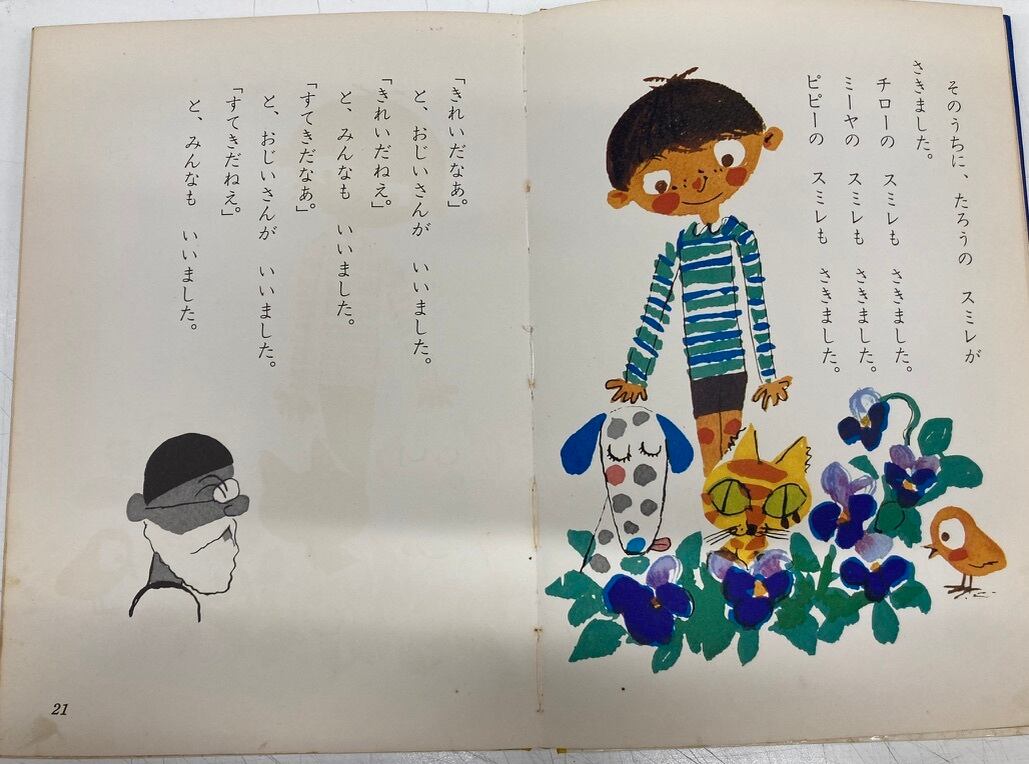 そのうちに、たろうの　スミレが
さきました。
チローの　スミレも　さきました。
ミーヤの　スミレも　さきました。
ピピーの　スミレも　さきました。
「きれいだなあ。」
と、おじいさんが　いいました。
「きれいだねえ。」
と、みんなも　いいました。
「すてきだなあ。」
と、おじいさんが　いいました。
「すてきだねえ。」
と、みんなも　いいました。
21